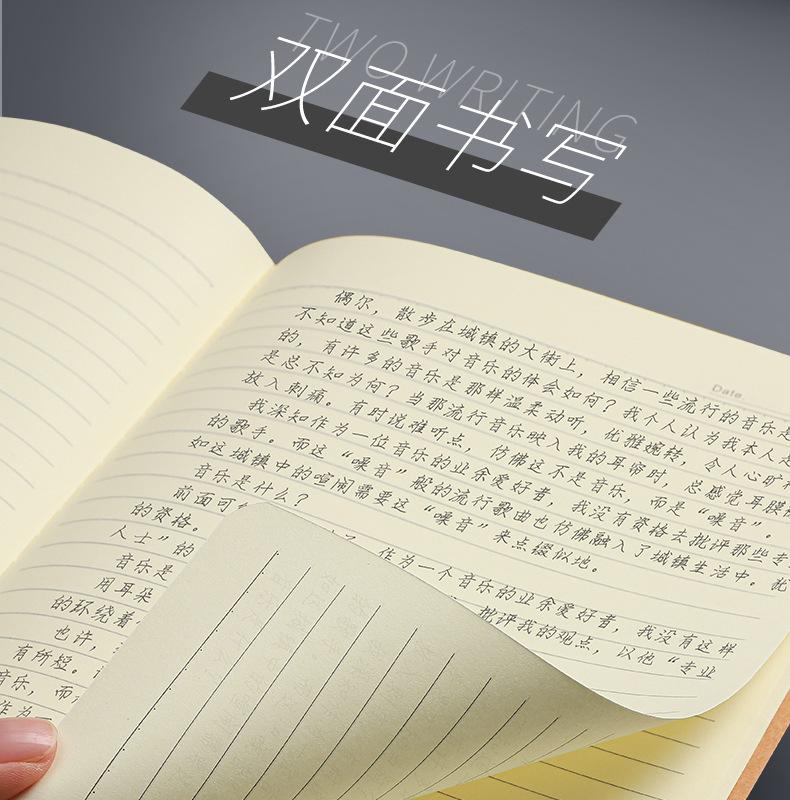 TWO WRITING
双面书写
Date.
偶尔，散步在城镇的大街上，相信一些流行的音乐是
不知道这些歌手对音乐的体会如何？我个人认为我本人是
的，有许多的音乐是那样温柔动听，优雅婉转，令人心旷
是总不知为何？当那流行音乐映入我的耳帘时，总感觉耳膜
放入刺痛。有时说难听点，仿佛这不是音乐，而是“噪音”。
我深知作为一位音乐的业余爱好者，我没有资格去批评那些专
的歌手。而这“噪音”般的流行歌曲也仿佛融入了城镇生活中。犹
如这城镇中的喧闹需要这“噪音”来点缀似地。
音乐是什么？
前面可
作为一个音乐的业余爱好者，我没有这样
的资格。
批评我的观点，以他“专业
人士”的
音乐是
用耳朵
的环绕着
也许，
有所短。
音乐，而
作为一